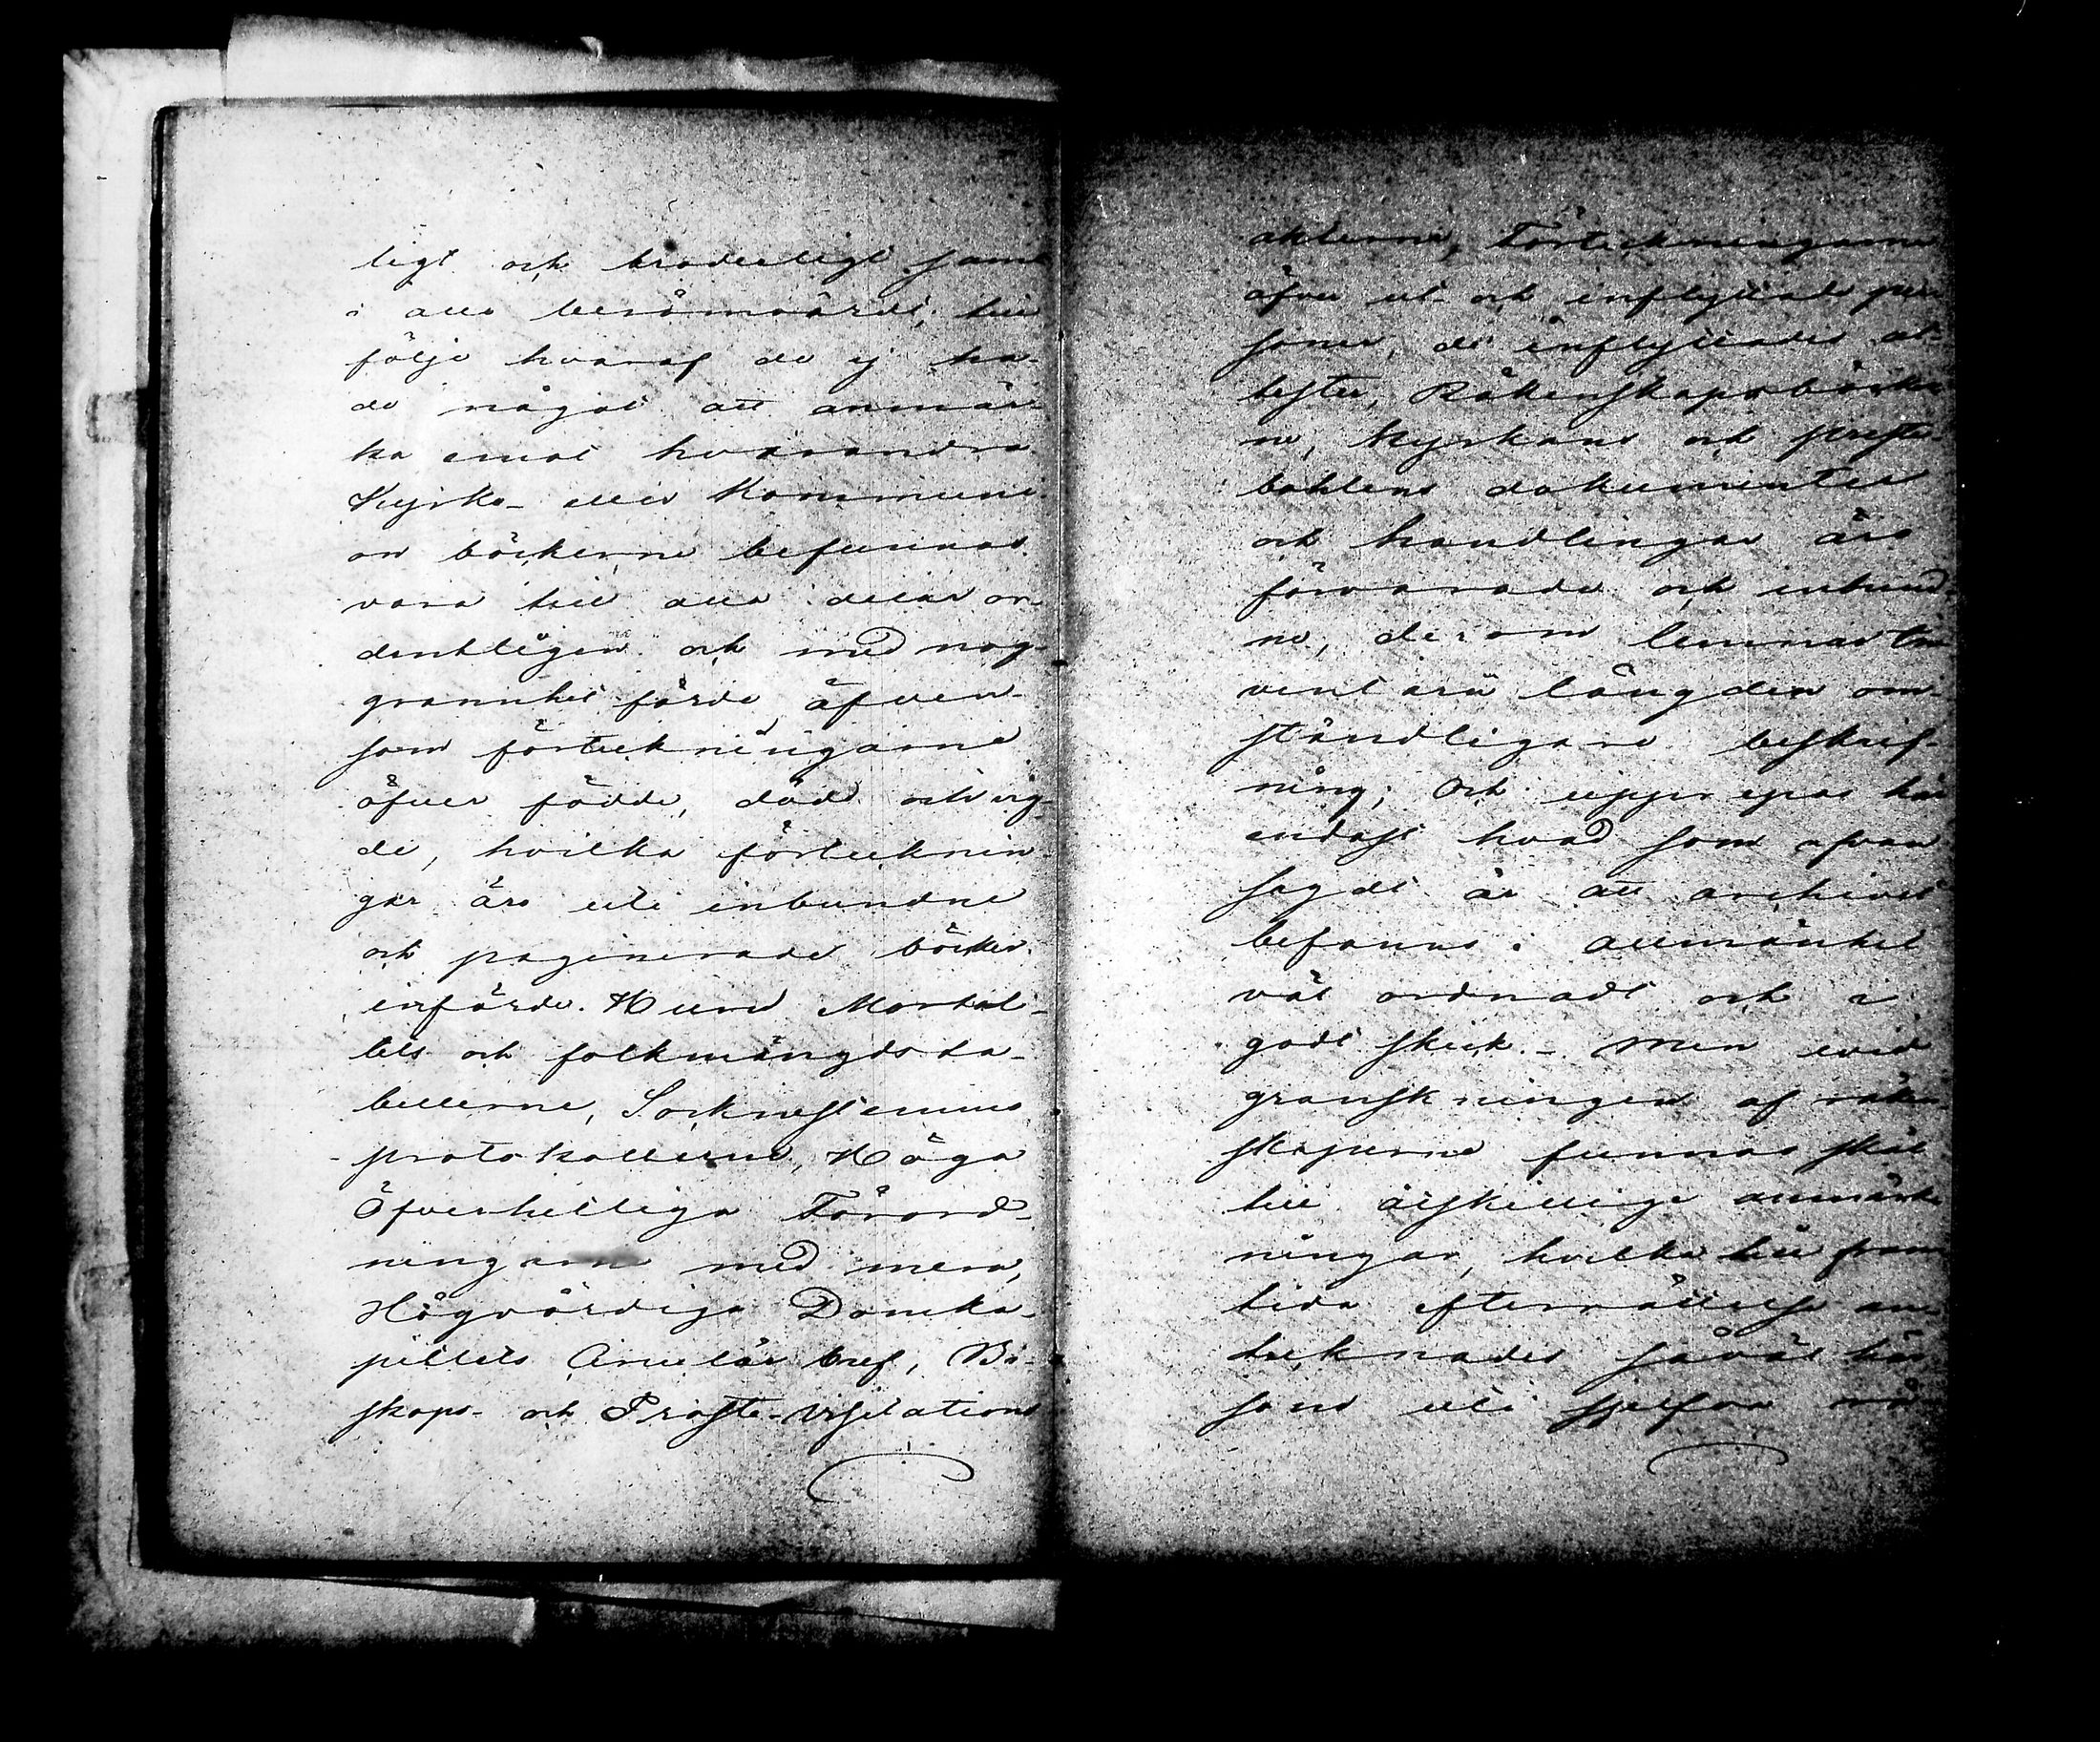 ligt och broderligt samt
i allo berömvärdt, till
följe hvaraf de ej ha-
de något att anmär-
ka emot hvarandra.
Kyrko- eller Kommuni-
on böckerne befunnos
vara till alla delar or-
dentligen och med nog-
grannhet förde äfven-
som förteckningarne
öfver födde, döde och vig-
de, hvilka förtecknin-
gar äro uti inbundne
och paginerade böcker
införde. Hund Mortali-
tets och folkmängds ta-
bellerne, Sockenstemmo
protokollerne, Höga
Öfverhetliga Förord-
ningarne med mera,
Högvördiga Domka-
pitlets Circulär bref, Bi-
skops- och Prosts-Visitations
akterne, Förteckningarne
öfver ut- och inflyttade per-
soner, de inflyttades at-
tester, Räkenskapsböcker-
ne, Kyrkans och preste-
bohlens dokumenter
och handlingar äro
förvarade och inbund-
ne, derom lemnar In-
ventarii längden om-
ständligare beskrif-
ning; Och upprepas här
endast hvad som ofvan
sagdt är att archivet
befanns i allmänhet
väl ordnadt och i
godt skick. - Men vid
granskningen af räken-
skaperne funnos skäl
till åtskillige anmärk-
ningar, hvilka till fram-
tida efterrättelse an-
tecknades såväl här
som uti sjelfva rä-